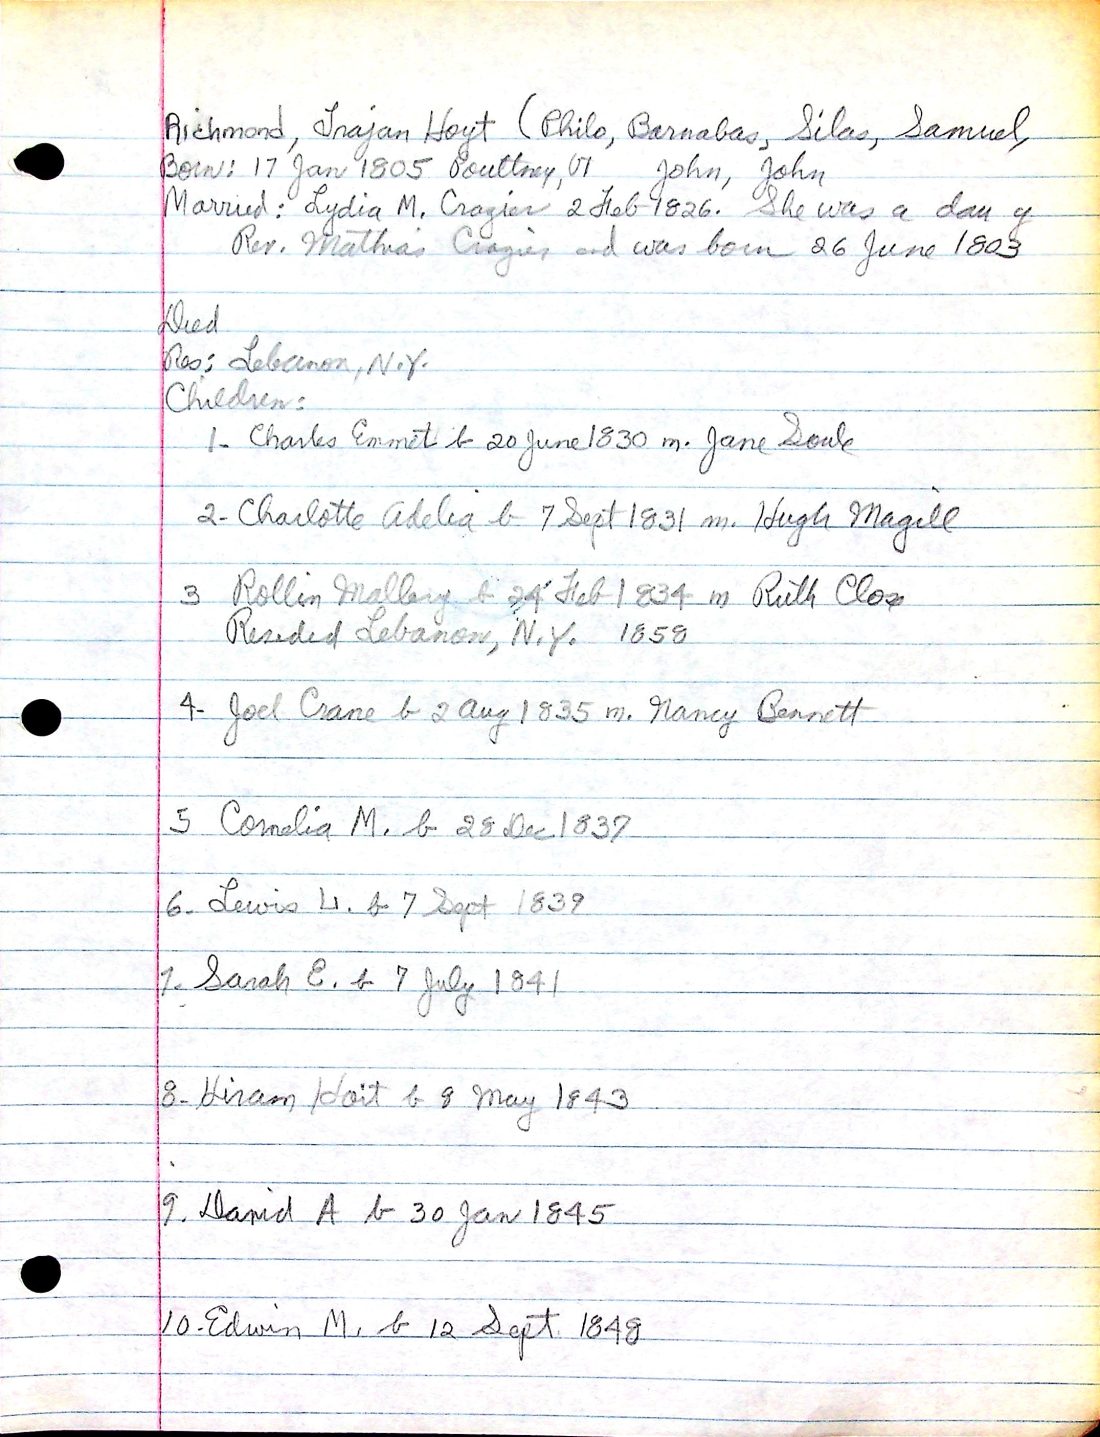 Richmond, Trajan Hoyt (Philo, Barnabas, Silas, Samuel,
Born: 17 Jan 1805 Poultney, Vt John, John
Married: Lydia M. Crozier 2 Feb 1826. She was a dau of
Rev. Mathias Crozier and was born 26 June 1803
Died
Res: Lebanon, N.Y.
Children:
1- Charles Emmet b 20 June 1830 m. Jane Soule
2- Charlotte Adelia b 7 Sept 1831 m. Hugh Magill
3 Rollin Mallory b 24 Feb 1834 m Ruth Close
Resided Lebanon, N.Y. 1858
4- Joel Crane b 2 Aug 1835 m. Nancy Bennett
5 Cornelia M. b 28 Dec 1837
6- Lewis L. b 7 Sept 1839
7- Sarah E. b 7 July 1841
8- Hiram Hoit b 8 May 1843
9. David A b 30 Jan 1845
10- Edwin M. b 12 Sept. 1848